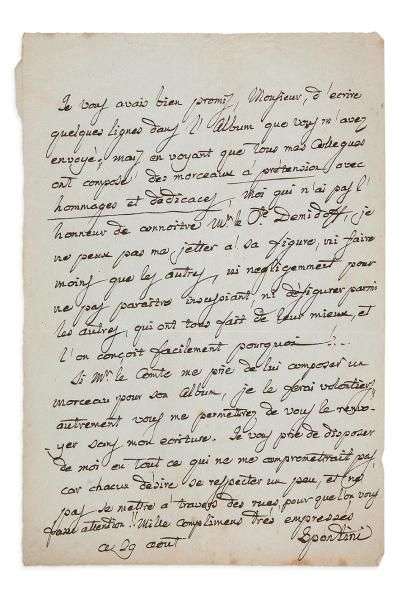 Je vous avais bien promis, Monsieur, d'écrire
quelques lignes dans l'Album que vous m'avez
envoyé; mais en voyant que tous mes Collègues
ont composé des morceaux a prétension avec
hommages et dédicaces, Moi qui n'ai pas l'
honneur de connoître Mr. le Cte. Demidoff, je
ne peux pas me jetter a sa figure, ni faire
moins que les autres, ni negligemment pour
ne pas paraître insouciant, ni défigurer parmi
les autres, qui ont tous fait de leur mieux, et
l'on conçoit facilement pourquoi
Si Mr. le Comte me prie de lui composer un
morceau pour son Album, je le ferai volontiers;
autrement vous me permettrez de vous le renvo-
yer sans mon ecriture. Je vous prie de disposer
de moi en tout ce qui ne me compromettrait pas
car chacun désire se respecter un peu, et ne
pas se mettre à travers des rues pour que l'on vous
fasse attention!! Mille complimens très empressés
ce 29 aout Spontini